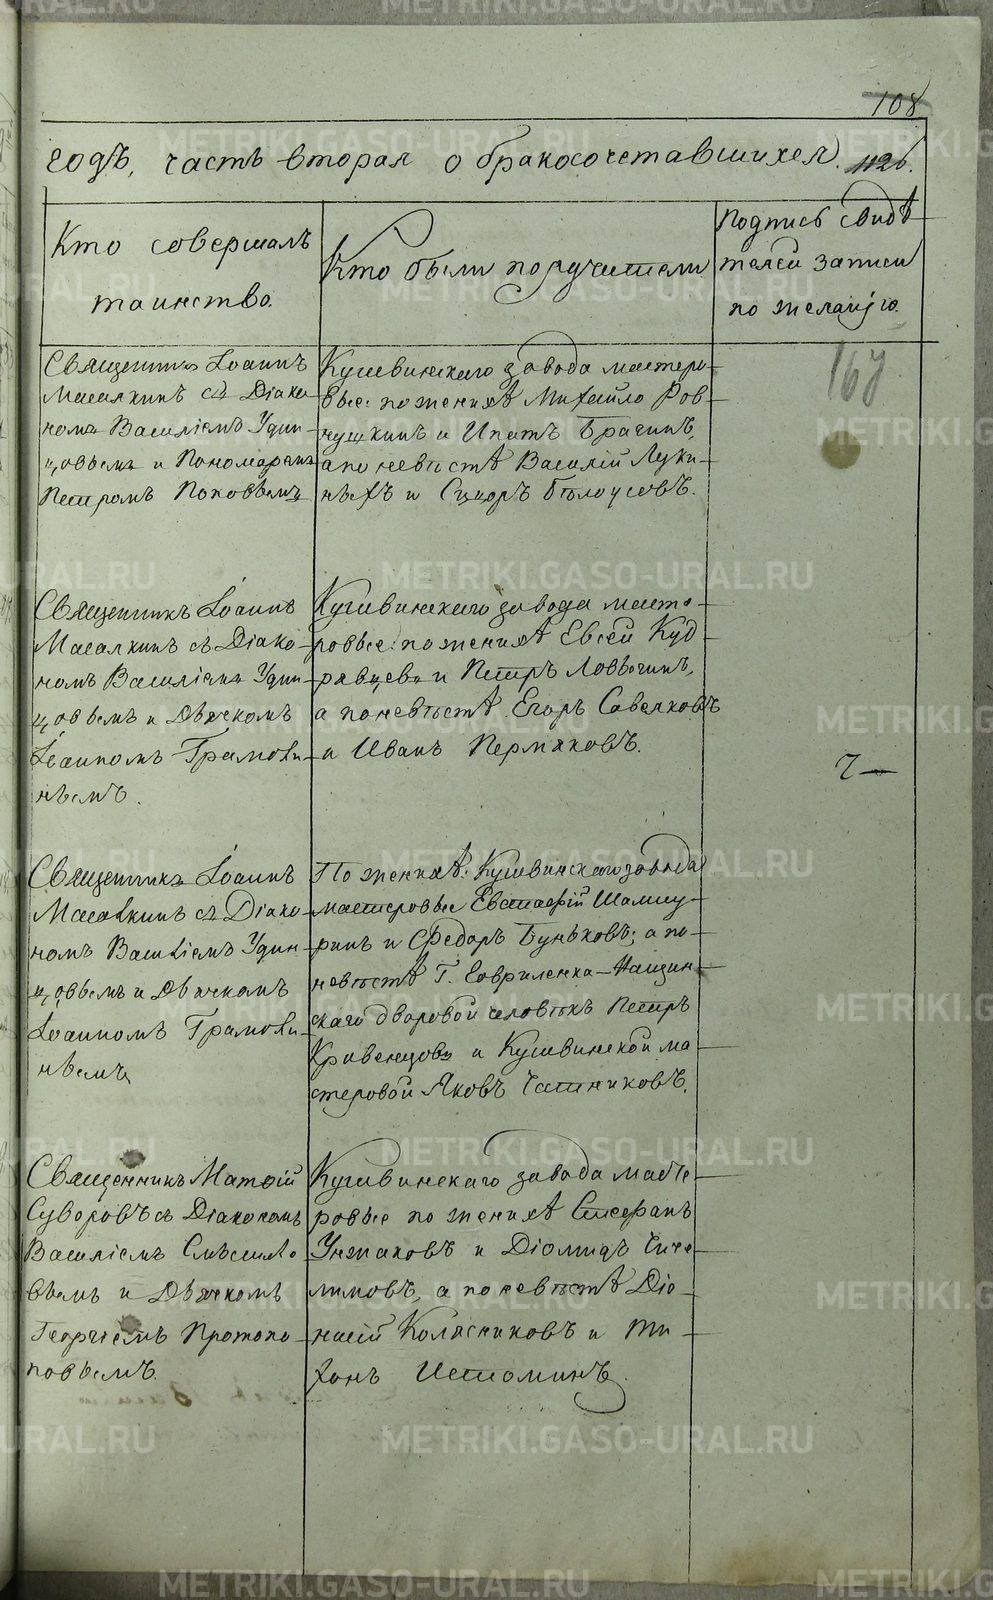 108
годъ, часть вторая о бракосочетавшихся. 112б.
Кто совершалъ
таинство.
Кто были поручители
Подпись свидѣ-
телей записи
по желанію.
Священникъ Іоаннъ
Масалкинъ съ Діако-
номъ Василіемъ Удин-
цовымъ и Пономаремъ
Петромъ Поповымъ
Кушвинскаго завода мастеро-
вые: по женихѣ Михайло Ров-
нушкинъ и Ипатъ Брагинъ,
а по невѣстѣ Василій Луки-
ныхъ и Сидоръ Бѣлоусовъ.
167
Священникъ Іоаннъ
Масалкинъ съ Діако-
номъ Василіемъ Удин-
цовымъ и Дьячкомъ
Іоанномъ Грамоли-
нымъ.
Кушвинскаго завода масте-
ровые: по женихѣ Евсей Куд-
рявцевъ и Петръ Ловыгинъ,
а по невѣстѣ Егоръ Савелковъ
и Иванъ Пермяковъ.
7—
Священникъ Іоаннъ
Масалкинъ съ Діако-
номъ Василіемъ Удин-
цовымъ и Дьячкомъ
Іоанномъ Грамоли-
нымъ
По женихѣ: Кушвинскаго завода
мастеровые Евстафій Шамшу-
ринъ и Федоръ Буньковъ; а по
невѣстѣ Г.
скаго дворовой человѣкъ Петръ
Кривенцовъ и Кушвинской ма-
стеровой Яковъ
Священникъ Матѳій
Суворовъ съ Діакономъ
Василіемъ
вымъ и Дьячкомъ
Георгіемъ Протопо-
повымъ.
Кушвинскаго завода масте-
ровые по женихѣ Стефанъ
Унжаковъ и Діомидъ
а по невѣстѣ Діо-
нисій Колясниковъ и Ти-
хонъ Истоминъ.
METRIKI.GASO-URAL.RU